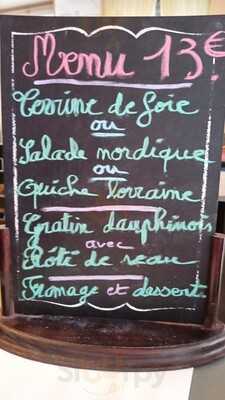 Menu 13€
Terrine de foie
ou
Salade nordique
ou
Quiche lorraine
Gratin dauphinois
avec
Rôté de veau
Fromage et dessert